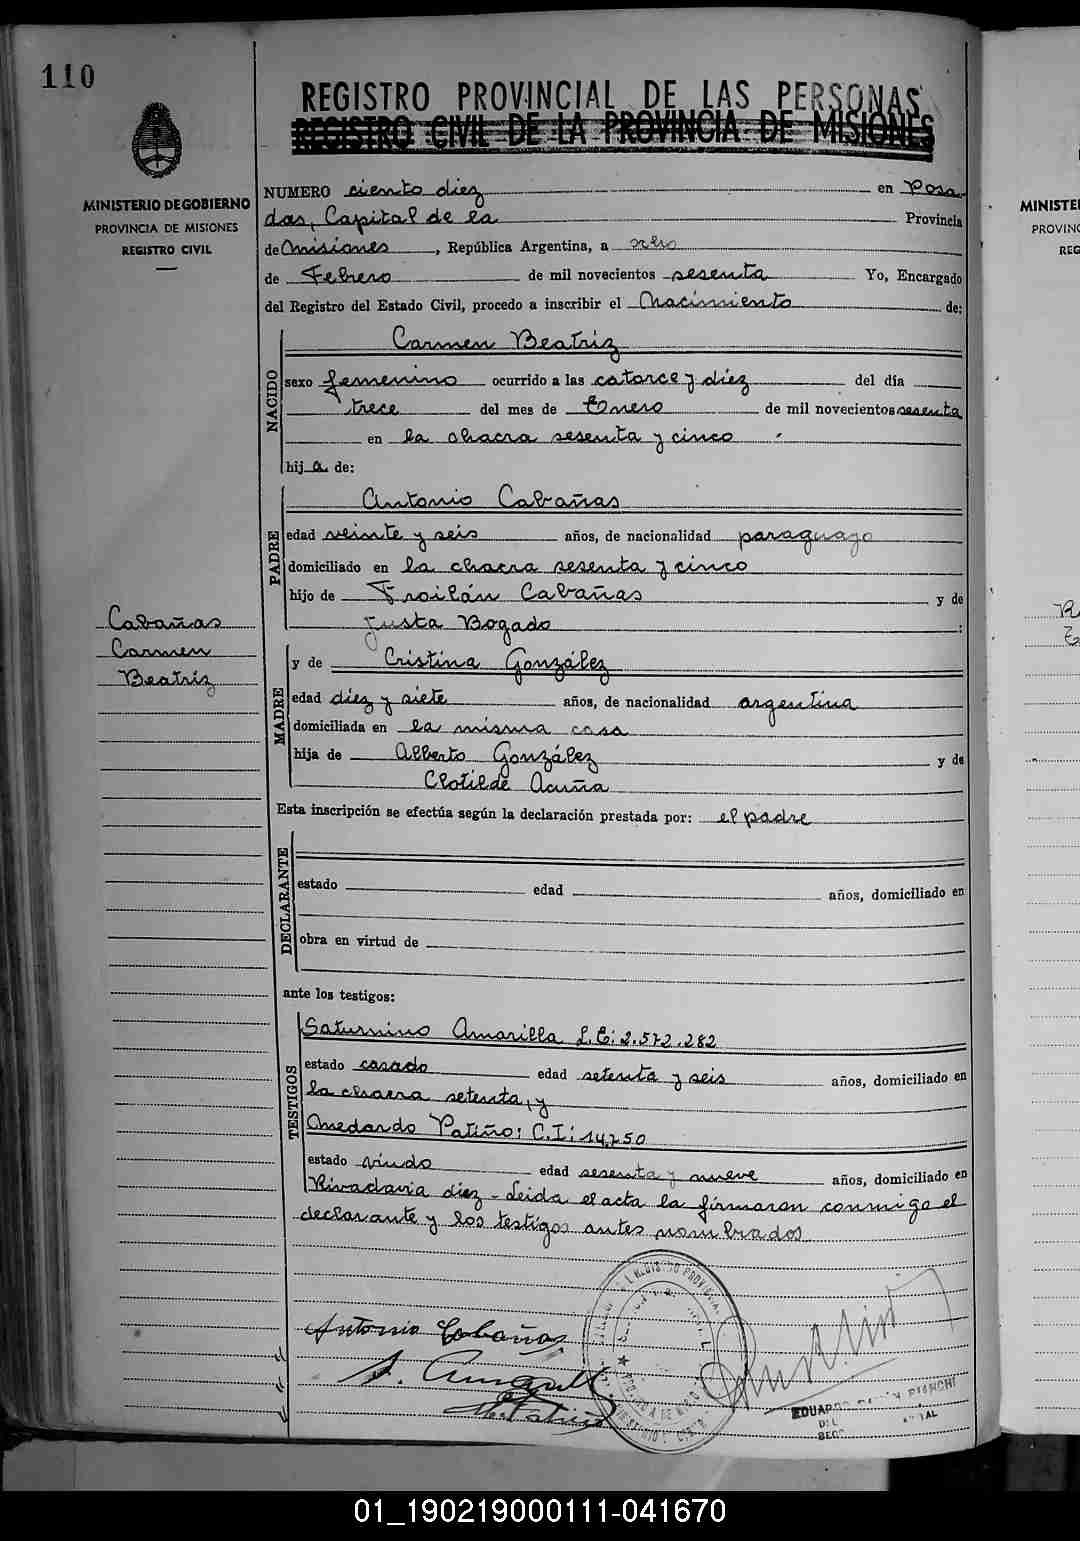 110
REGISTRO PROVINCIAL DE LAS PERSONAS
REGISTRO CIVIL DE LA PROVINCIA DE MISIONES
MINISTERIO DE GOBIERNO
PROVINCIA DE MISIONES
REGISTRO CIVIL
NUMERO ciento diez en Posa-
das, Capital de la Provincia
de Misiones, República Argentina, a
de Febrero de mil novecientos sesenta Yo, Encargado
del Registro del Estado Civil, procedo a inscribir el Nacimiento de:
NACIDO
Carmen Beatriz
sexo femenino ocurrido a las catorce y diez del día
trece del mes de Enero de mil novecientos sesenta
en la chacra sesenta y cinco
hija de:
PADRE
Antonio Cabañas
edad veinte y seis años, de nacionalidad paraguayo
domiciliado en la chacra sesenta y cinco
hijo de Froilán Cabañas y de
Justa Bogado :
Cabañas
Carmen
Beatriz
MADRE
y de Cristina González
edad diez y siete años, de nacionalidad argentina
domiciliada en la misma casa
hija de Alberto González y de
Clotilde Acuña
Esta inscripción se efectúa según la declaración prestada por: el padre
DECLARANTE
estado edad años, domiciliado en
obra en virtud de
ante los testigos:
TESTIGOS
Saturnino Amarilla L.E: 2.572.282
estado casado edad setenta y seis años, domiciliado en
la chacra setenta, y
Medardo Patiño: C.I: 14.750
estado viudo edad sesenta y nueve años, domiciliado en
Rivadavia diez - Leida el acta la firmaron conmigo el
declarante y los testigos antes nombrados
Antonio Cabañas
EDUARDO BIANCHI
MINISTE
PROVINC
REG
01_190219000111-041670